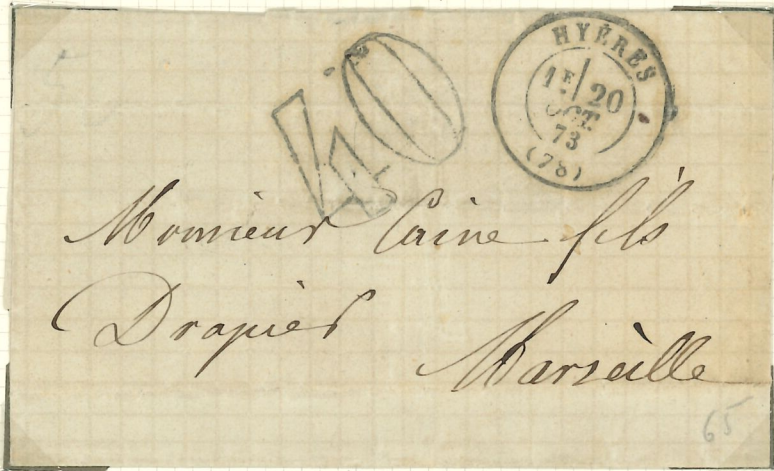 40
HYÈRES
1E/ 20
OCT.
73
(78)
Monsieur Caine fils
Drapier
Marseille
65